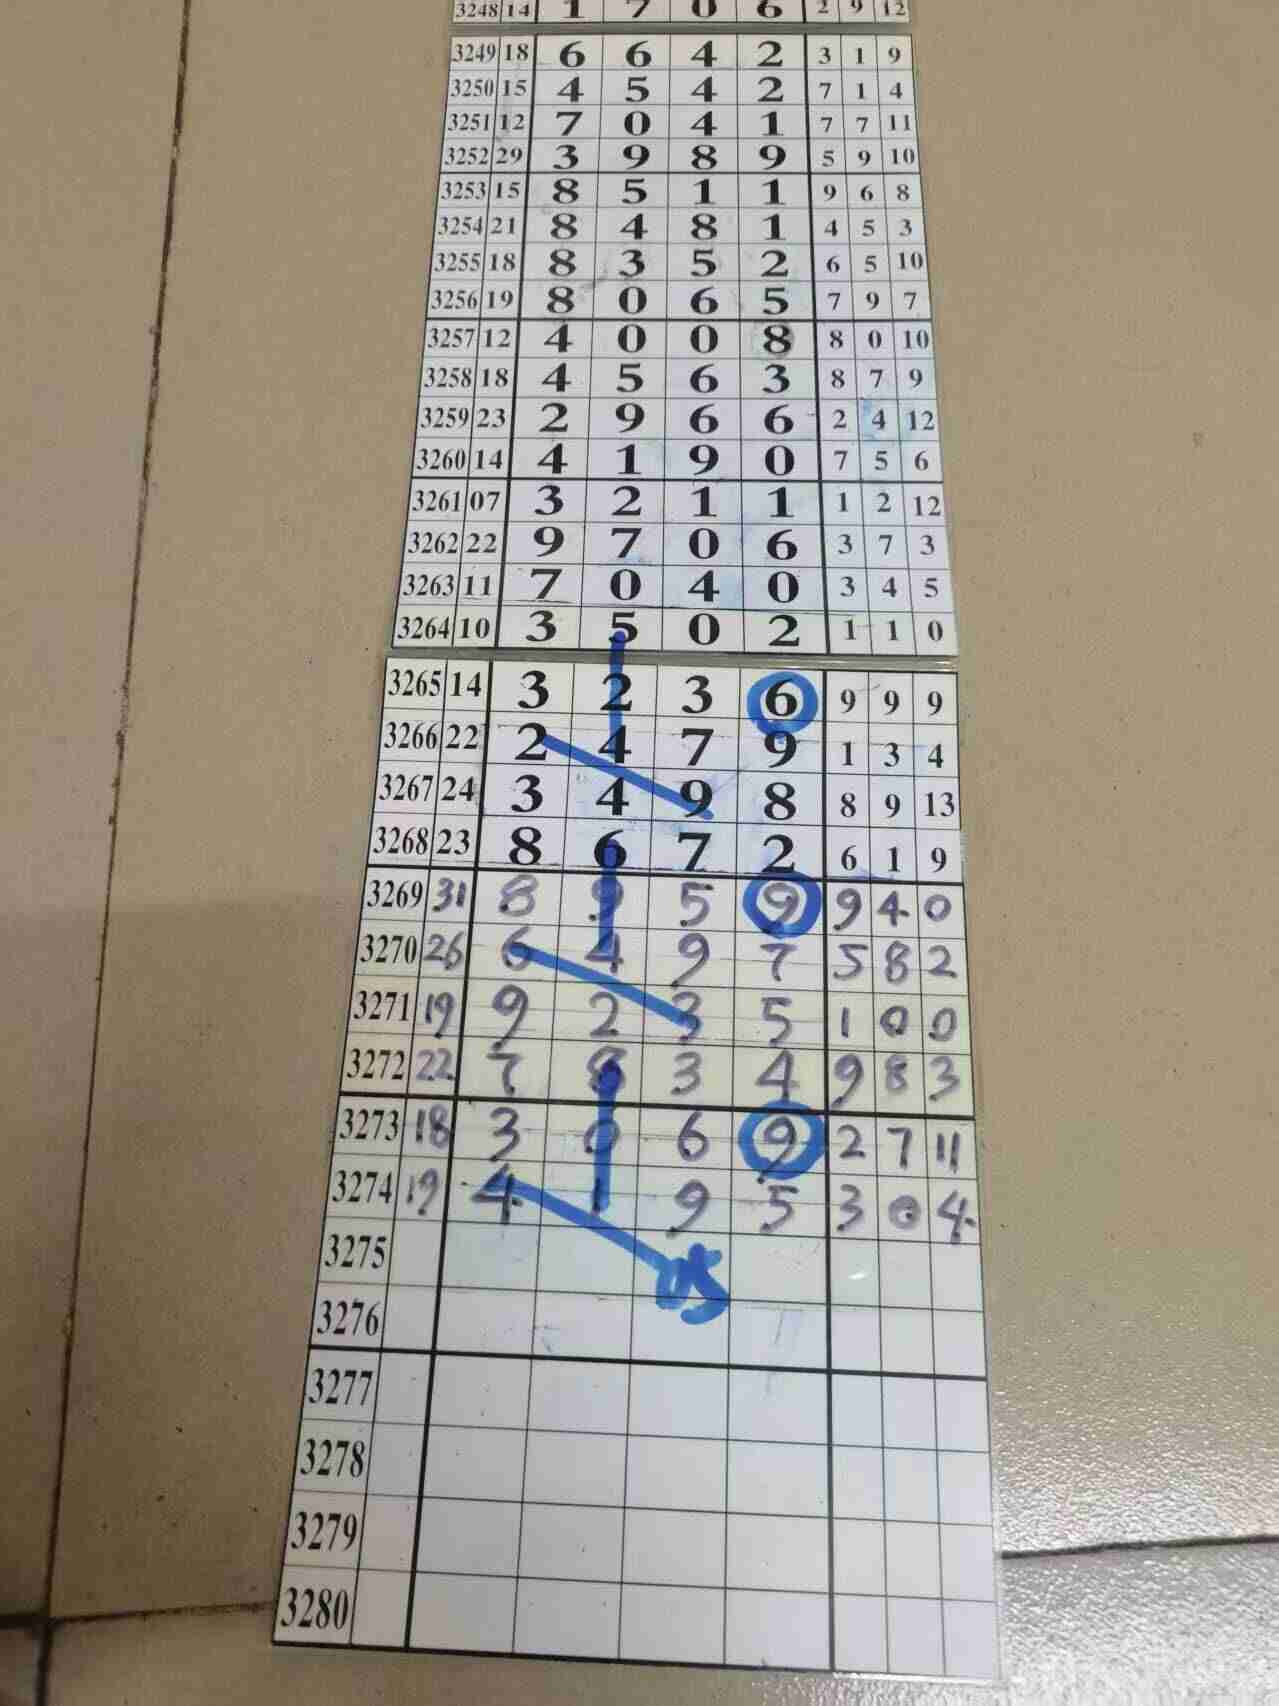 3248 14 1 7 0 6 2 9 12
3249 18 6 6 4 2 3 1 9
3250 15 4 5 4 2 7 1 4
3251 12 7 0 4 1 7 7 11
3252 29 3 9 8 9 5 9 10
3253 15 8 5 1 1 9 6 8
3254 21 8 4 8 1 4 5 3
3255 18 8 3 5 2 6 5 10
3256 19 8 0 6 5 7 9 7
3257 12 4 0 0 8 8 0 10
3258 18 4 5 6 3 8 7 9
3259 23 2 9 6 6 2 4 12
3260 14 4 1 9 0 7 5 6
3261 07 3 2 1 1 1 2 12
3262 22 9 7 0 6 3 7 3
3263 11 7 0 4 0 3 4 5
3264 10 3 5 0 2 1 1 0
3265 14 3 2 3 6 9 9 9
3266 22 2 4 7 9 1 3 4
3267 24 3 4 9 8 8 9 13
3268 23 8 6 7 2 6 1 9
3269 31 8 9 5 9 9 4 0
3270 26 6 4 9 7 5 8 2
3271 19 9 2 3 5 1 0 0
3272 22 7 8 3 4 9 8 3
3273 18 3 0 6 9 2 7 11
3274 19 4 1 9 5 3 0 4
3275 05
3276
3277
3278
3279
3280